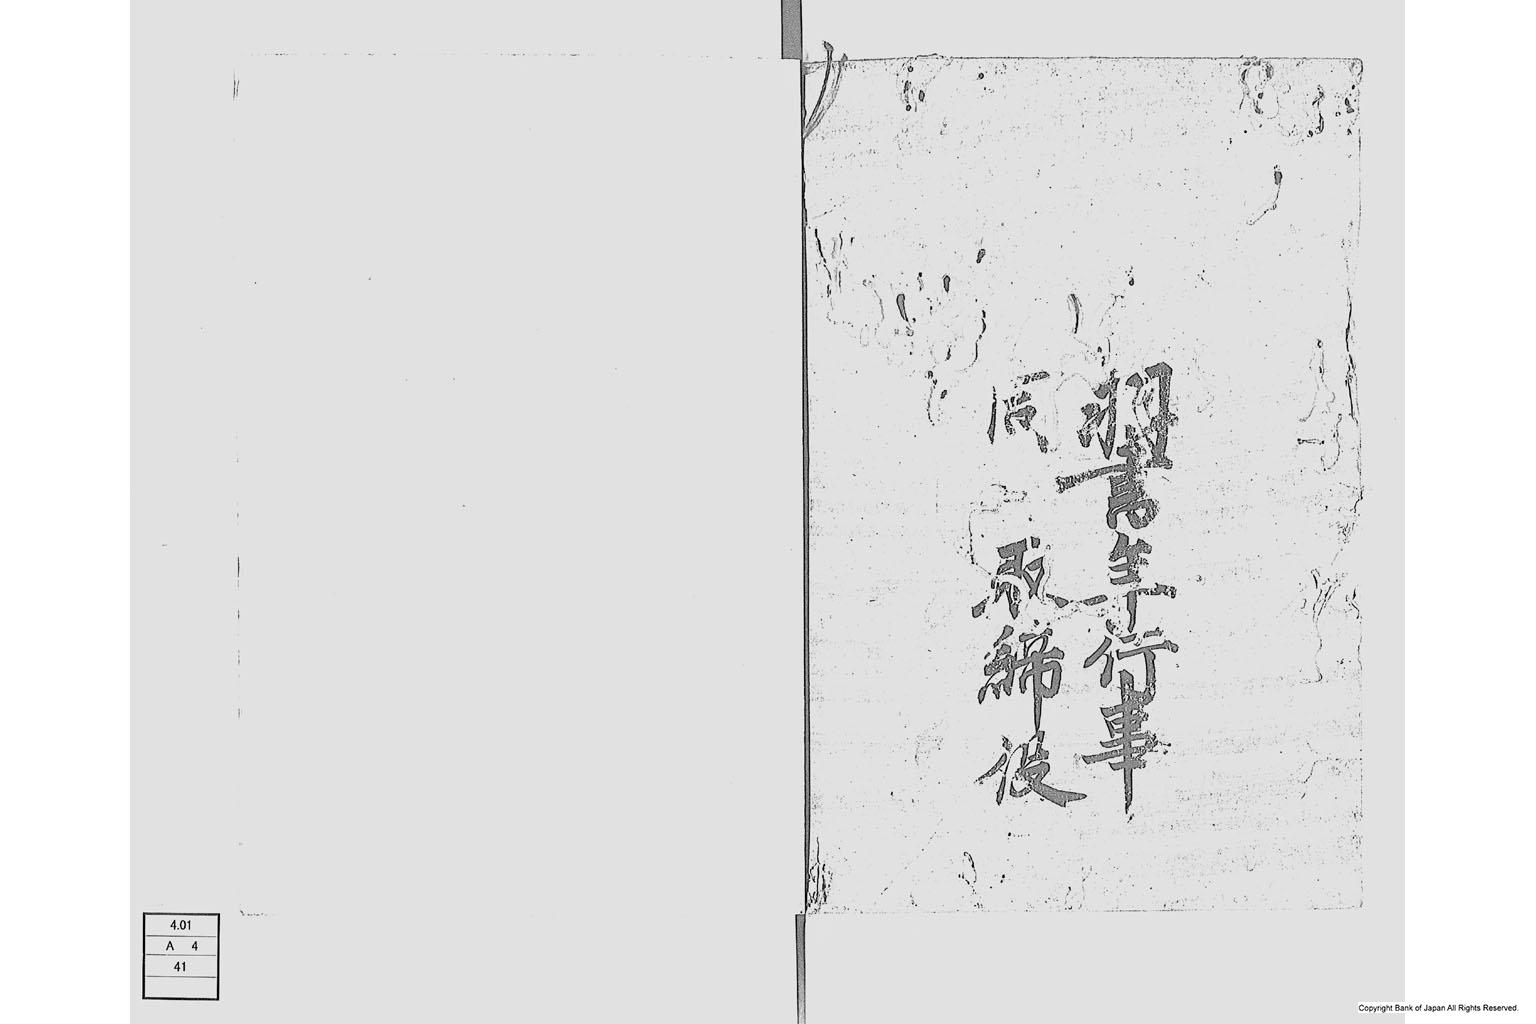 羽書年行事
同 取締役
4.01
A 4
41
Copyright Bank of Japan All Rights Reserved.